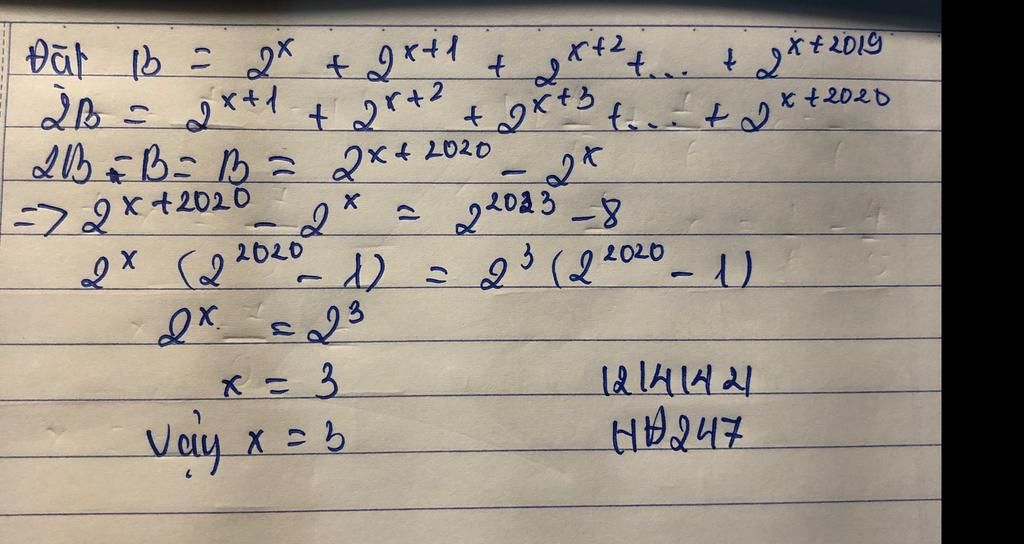 Đặt B = 2^x + 2^{x+1} + 2^{x+2} + ... + 2^{x+2019}
2B = 2^{x+1} + 2^{x+2} + 2^{x+3} + ... + 2^{x+2020}
2B - B = B = 2^{x+2020} - 2^x
=> 2^{x+2020} - 2^x = 2^{2023} - 8
2^x (2^{2020} - 1) = 2^3 (2^{2020} - 1)
2^x = 2^3
x = 3 12141421
Vậy x = 3 HĐ247